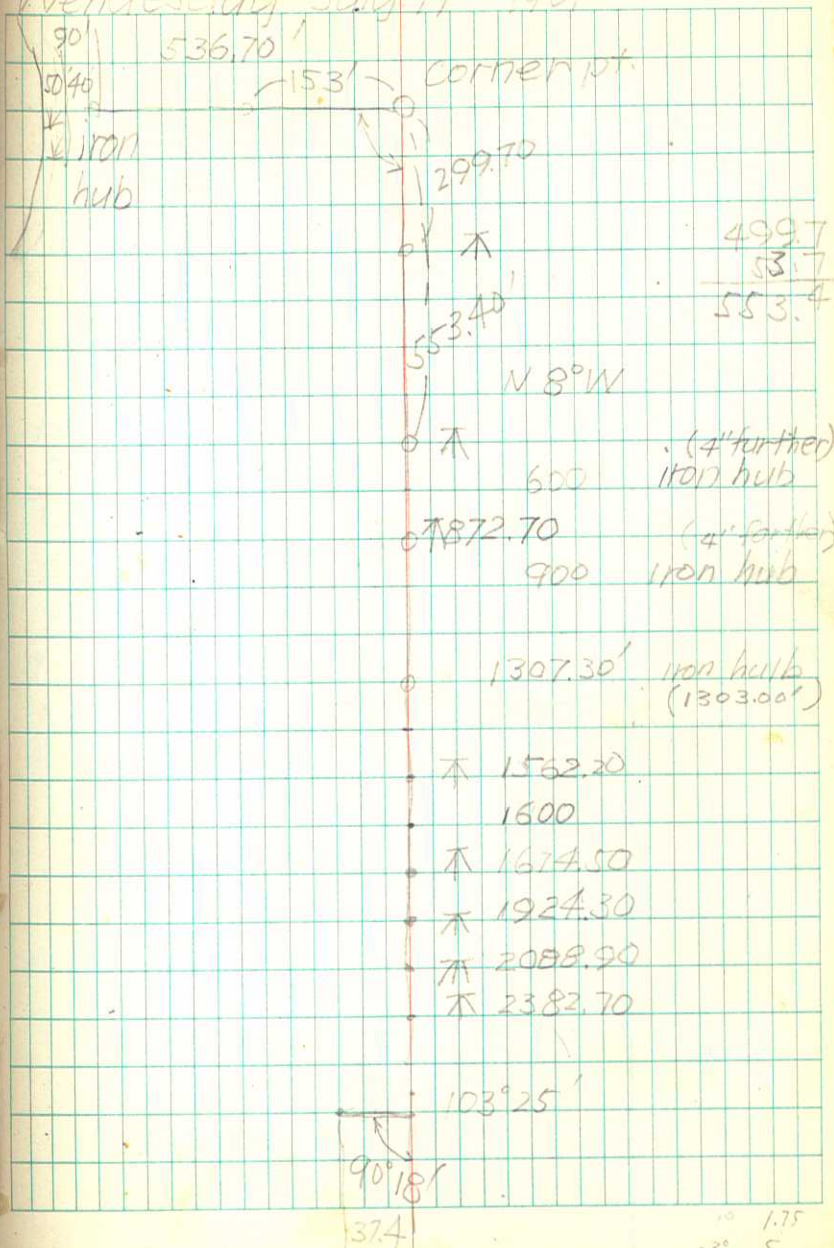 Wednesday July
90' 536.70'
50' 40' 153' Corner pt.
iron
hub
299.70
499.7
53.7
553.4
553.40'
N 8° W
(4" further)
600 iron hub
872.70 (4" further)
900 iron hub
1307.30' iron hulb
(1303.00')
1562.20
1600
1674.50
1924.30
2088.90
2382.70
103° 25'
90° 18'
37.4
1.75